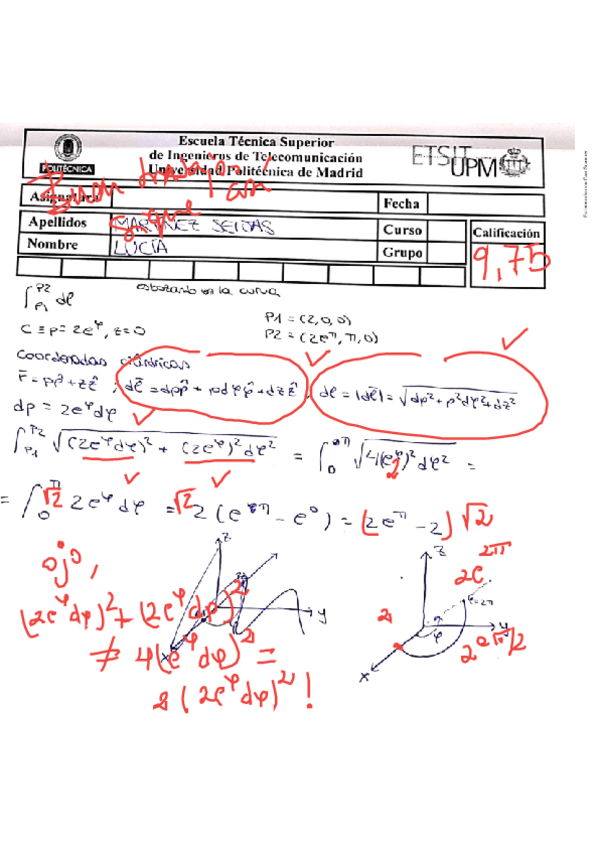 Escuela Técnica Superior
de Ingenieros de Telecomunicación
Universidad Politécnica de Madrid
POLITÉCNICA
ETSIT UPM
Buen trabajo!
Asignatura
Fecha
sigue así
Apellidos MARTINEZ SEIJAS
Curso
Calificación
Nombre LUCÍA
Grupo
9,75
∫_{P1}^{P2} dl en la curva
P1 = (2,0,0)
C ≡ ρ = 2e^φ, z=0
P2 = (2e^π, π, 0)
Coordenadas cilíndricas
r̄ = ρρ̂ + zẑ ; dl̄ = dρρ̂ + ρdφφ̂ + dzẑ, dl = |dl̄| = √(dρ² + ρ²dφ² + dz²)
dρ = 2e^φ dφ
∫_{P1}^{P2} √((2e^φ dφ)² + (2e^φ)² dφ²) = ∫_0^π √(4(e^φ)² dφ²) =
= ∫_0^π √2 2e^φ dφ = √2 2(e^π - e^0) = (2e^π - 2) √2
ojo,
(2e^φ dφ)² + (2e^φ dφ)²
≠ 4(e^φ dφ)² =
2(2e^φ dφ)² !
z
y
x
z
2e^2π
φ=2π
2
φ
y
2e^π/2
x